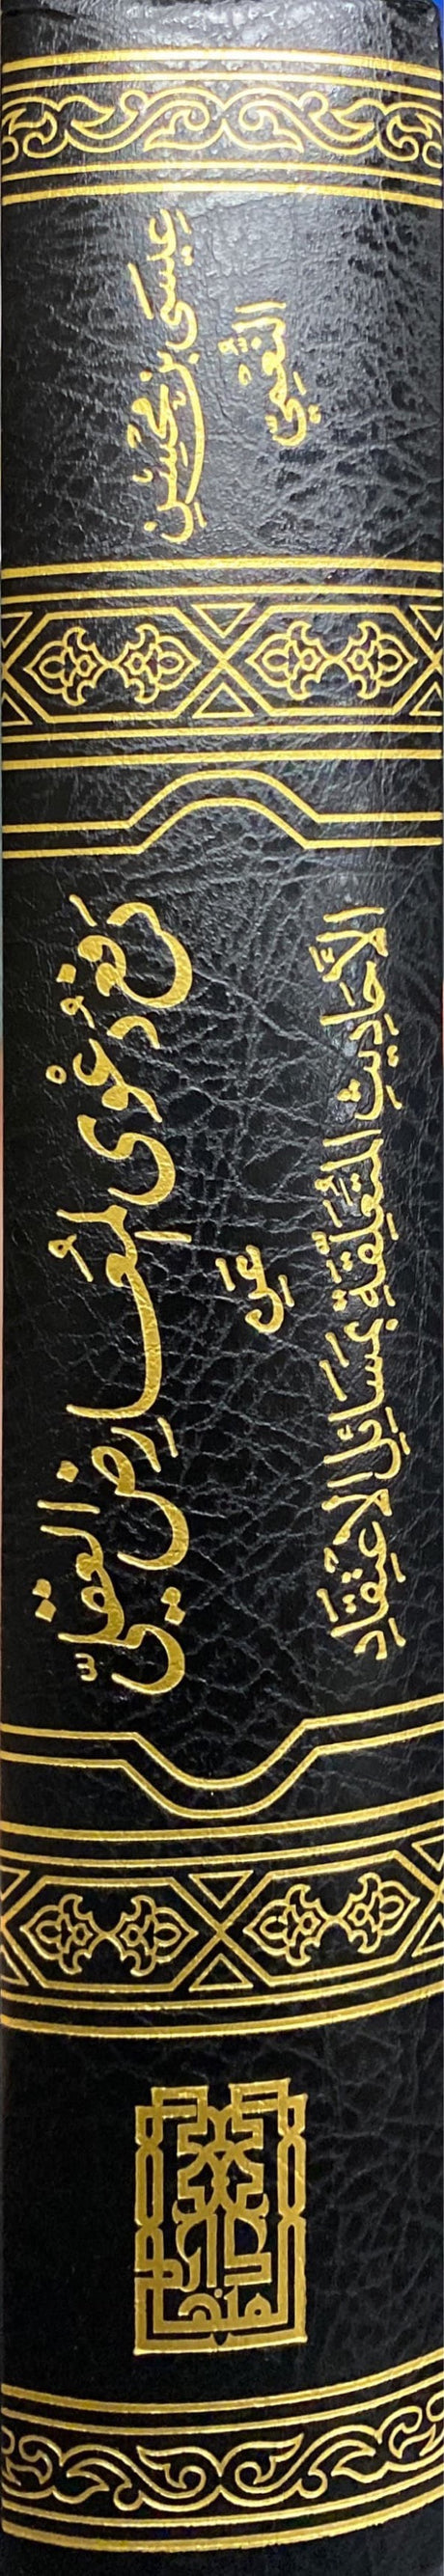 عِيسَى بن مُحسِن
النُّعْمِيّ
دَفعُ دَعْوَى المُعَارِضِ العَقليّ
عَنِ
الأَحَادِيثِ المُتَعَلِّقَةِ بِمَسَائِلِ الاعْتِقَادِ
دار المنهاج